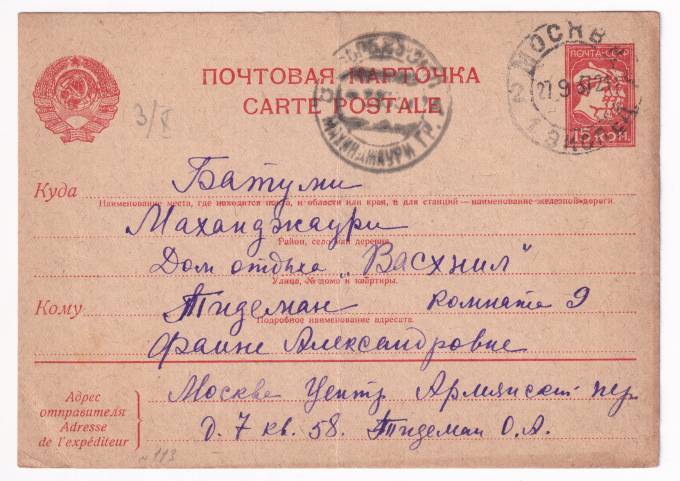 ПОЧТОВАЯ КАРТОЧКА
CARTE POSTALE
ПОЧТА СССР
15 КОП.
МОСКВА
27.9.37
3/X
Куда Батуми
Наименование места, где находится почта, и области или края, а для станций—наименование железной дороги.
Маханджаури
Район, село или деревня.
Дом отдыха "Васхнил"
Улица, № дома и квартиры.
Кому Тидеман комната 9
Подробное наименование адресата.
Фаине Александровне
Адрес отправителя
Adresse de l'expéditeur
Москва Центр Армянский пер
д. 7 кв. 58. Тидеман О.А.
113